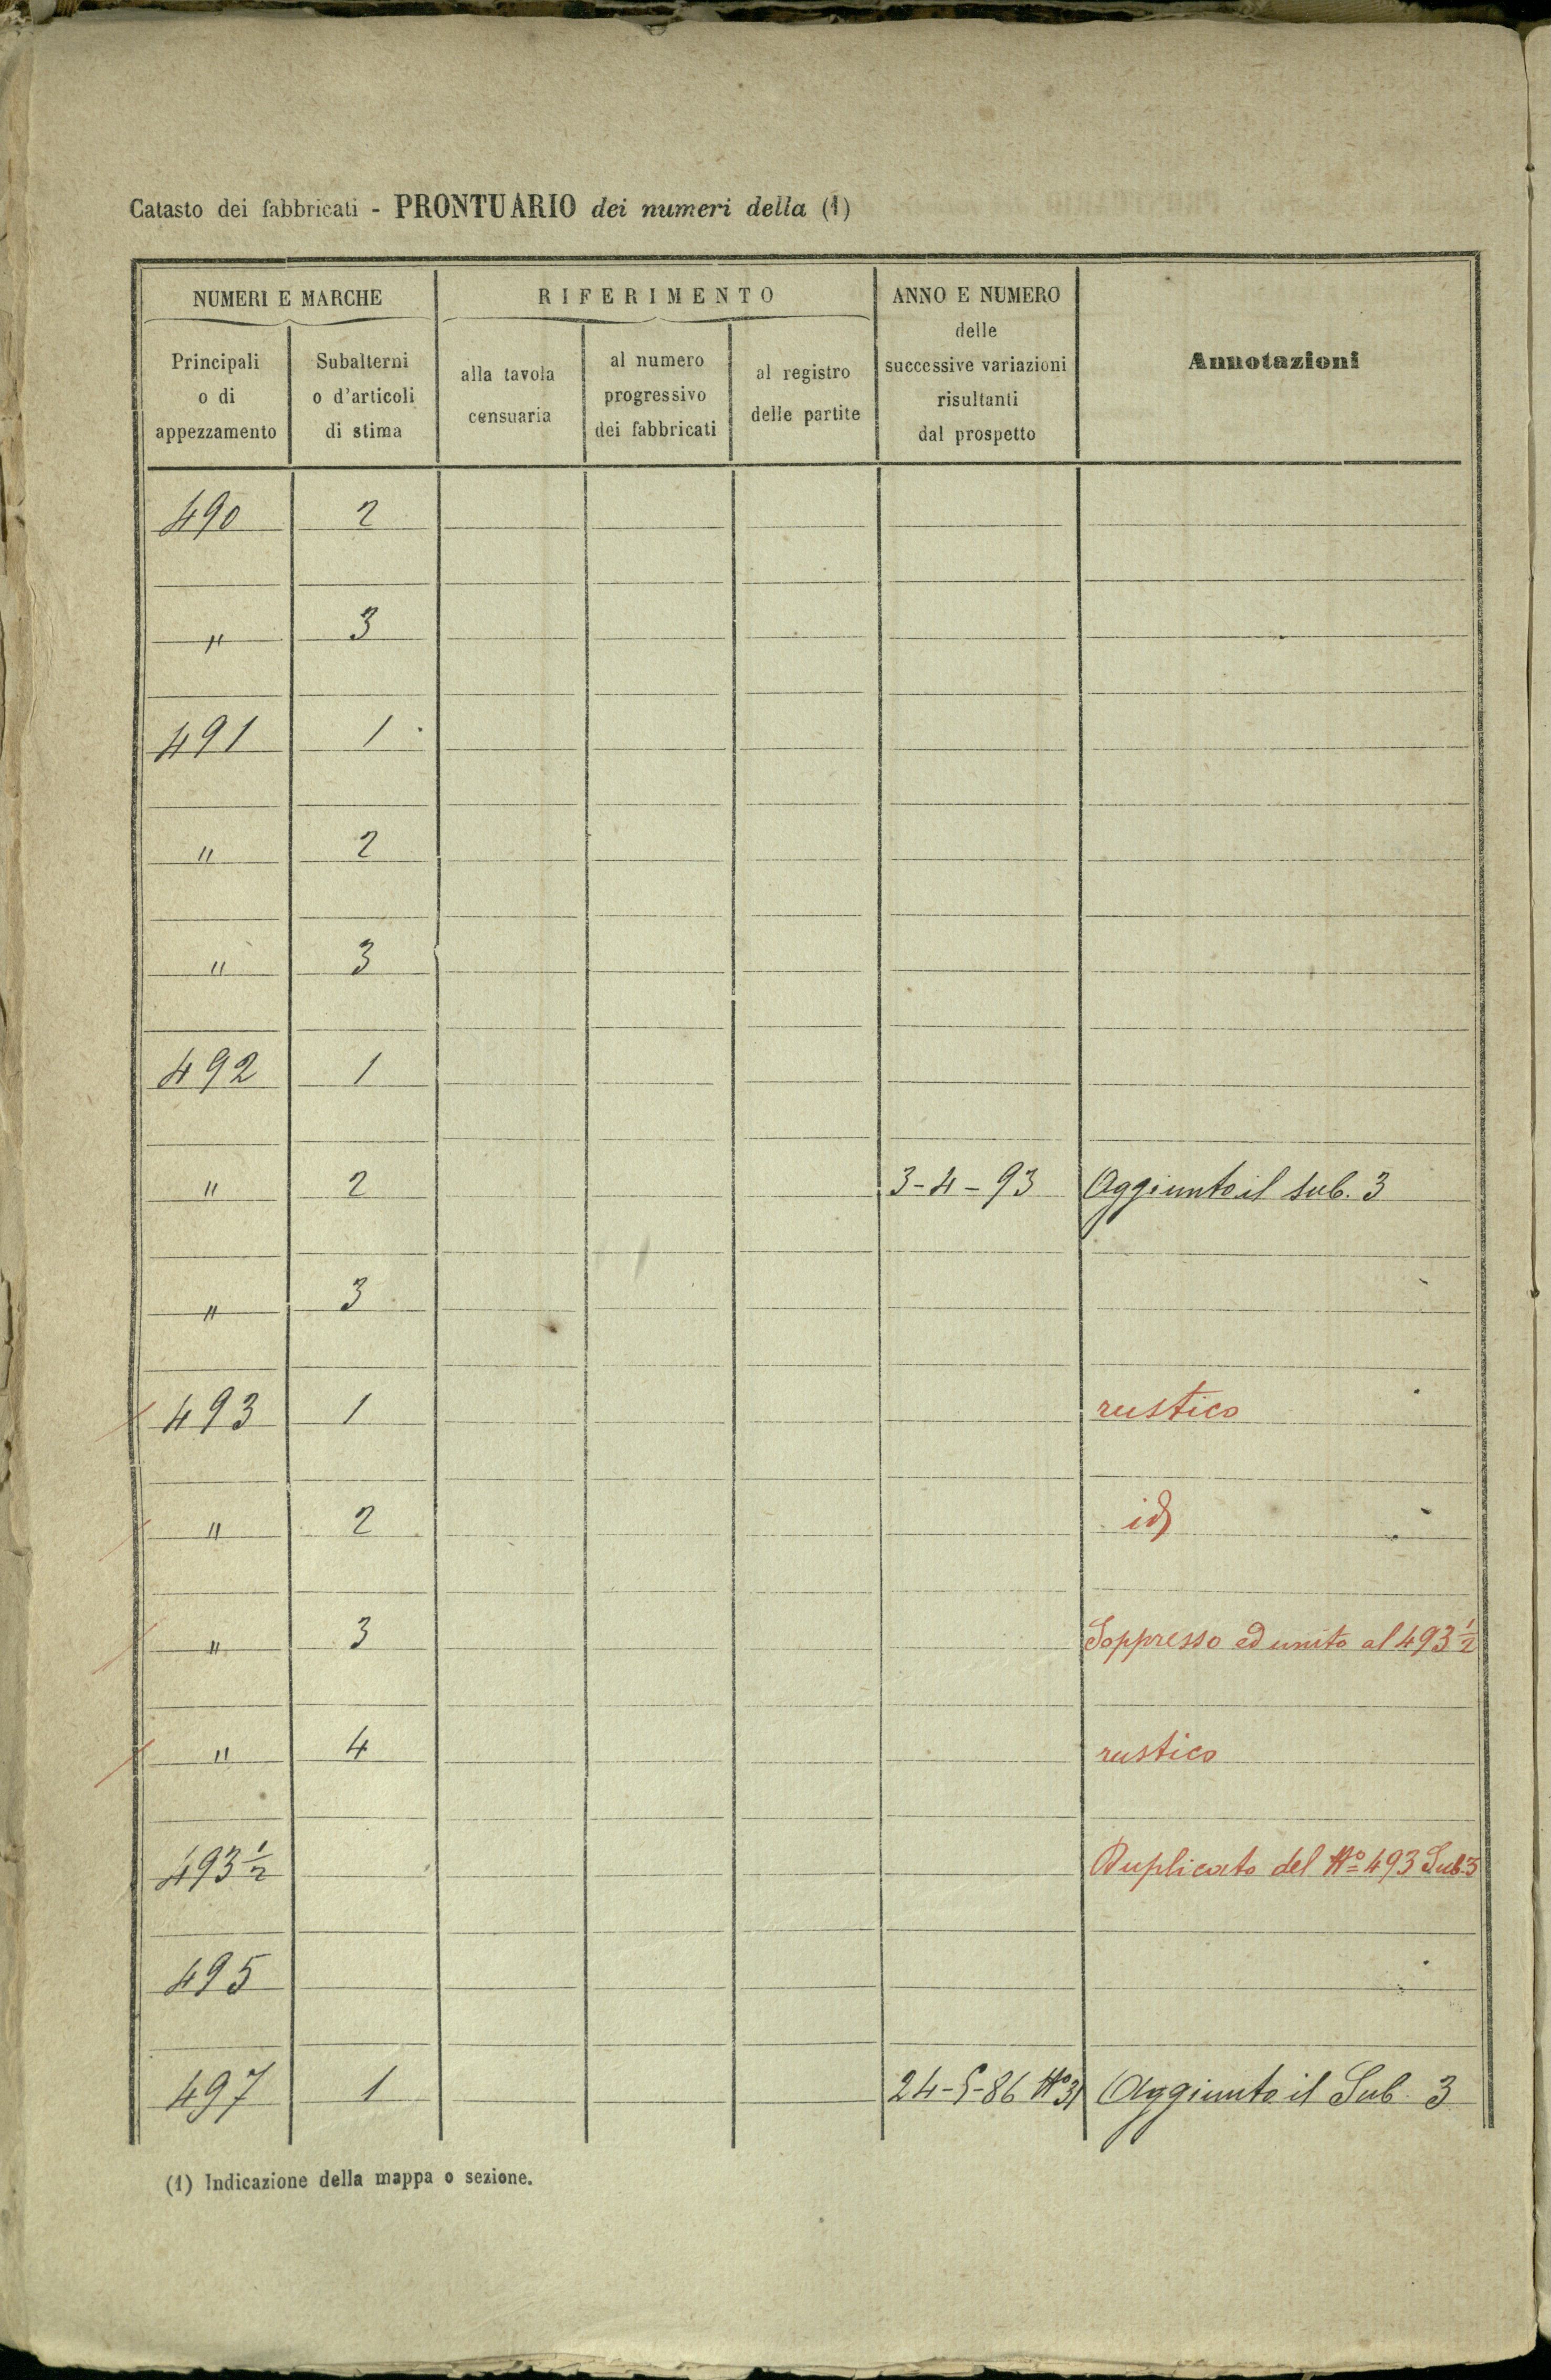 Catasto dei fabbricati - PRONTUARIO dei numeri della (1)
NUMERI E MARCHE
RIFERIMENTO
ANNO E NUMERO
delle
successive variazioni
risultanti
dal prospetto
Annotazioni
Principali
o di
appezzamento
Subalterni
o d'articoli
di stima
alla tavola
censuaria
al numero
progressivo
dei fabbricati
al registro
delle partite
490 2
" 3
491 1
" 2
" 3
492 1
" 2 3-4-93 Aggiunto il sub. 3
" 3
493 1 rustico
" 2 id
" 3 Soppresso ed unito al 493 1/2
" 4 rustico
493 1/2 Duplicato del Nº 493 Sub. 3
495
497 1 24-5-86 Nº 31 Aggiunto il Sub. 3
(1) Indicazione della mappa o sezione.